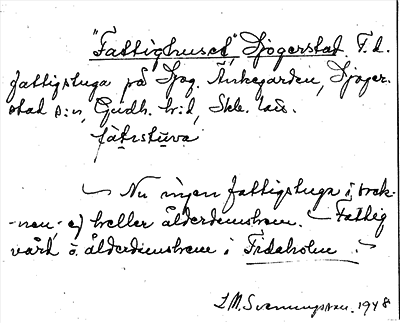 "Fattighuset", Sjogerstad. F.d.
fattigstuga på Sjog. Änkegården, Sjoger-
stad s:n, Gudh. h:d, Skbs. län.
fàt̩istùva
Nu ingen fattigstuga i sock-
-nen, ej heller ålderdomshem. Fattig
vård o. ålderdomshem i Fridhem.
L.M. Svenungsson. 1948